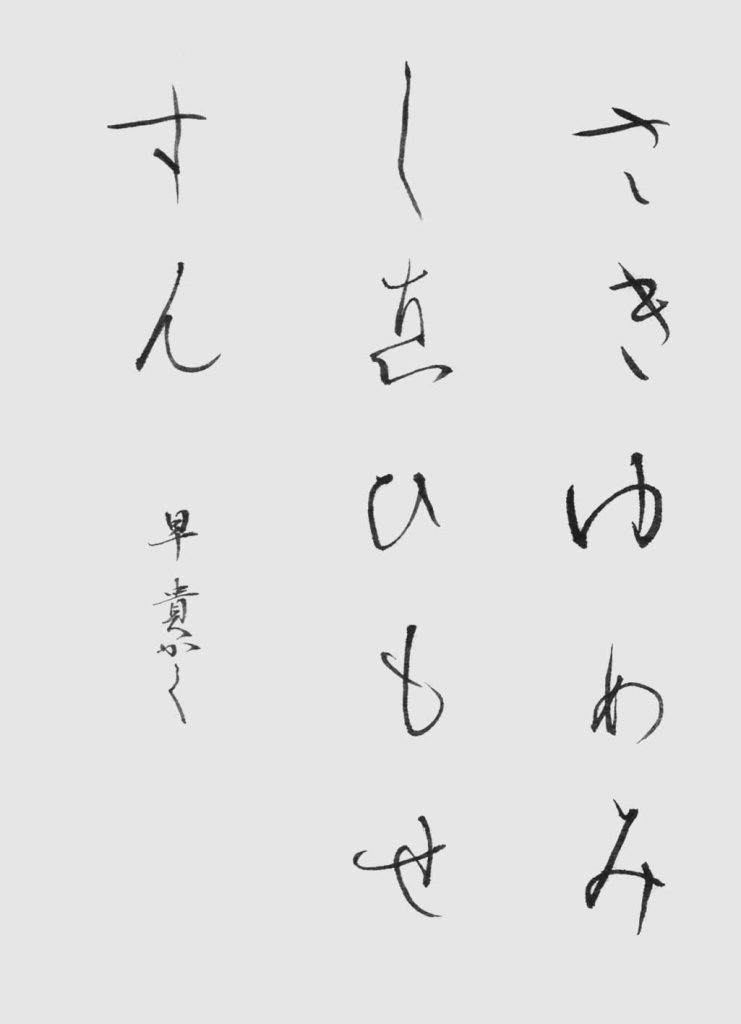 さきゆめみ
しゑひもせ
すん
早貴かく